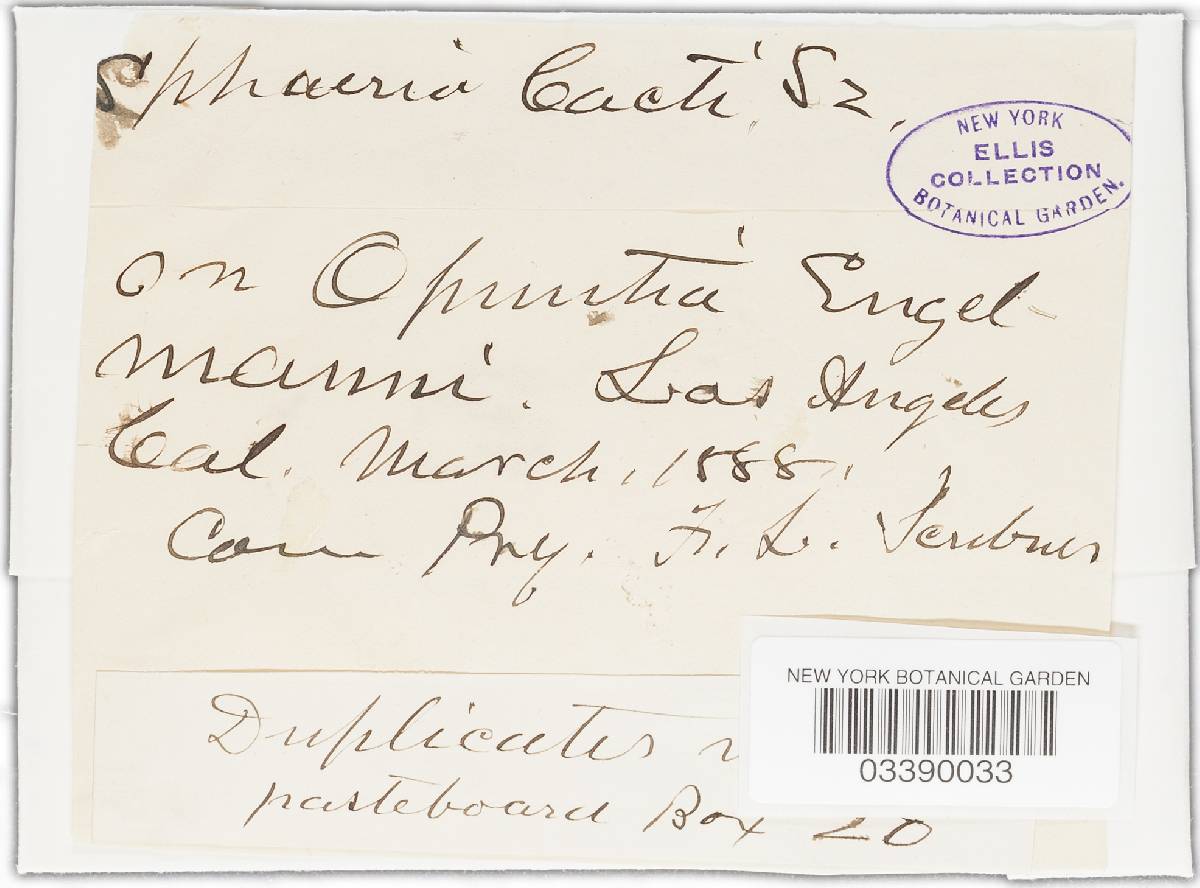 Sphaeria Cacti, Sz,
NEW YORK
ELLIS
COLLECTION
BOTANICAL GARDEN.
on Opuntia Engel-
manni. Los Angeles
Cal. March, 1888,
Com Prof. F. L. Scribner
Duplicates
pasteboard Box 20
NEW YORK BOTANICAL GARDEN
03390033